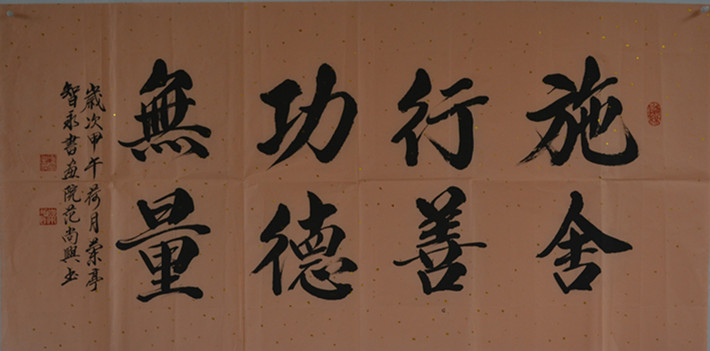 施舍
行善
功德
無量
歲次甲午荷月蘭亭
智永書画院范尚興书